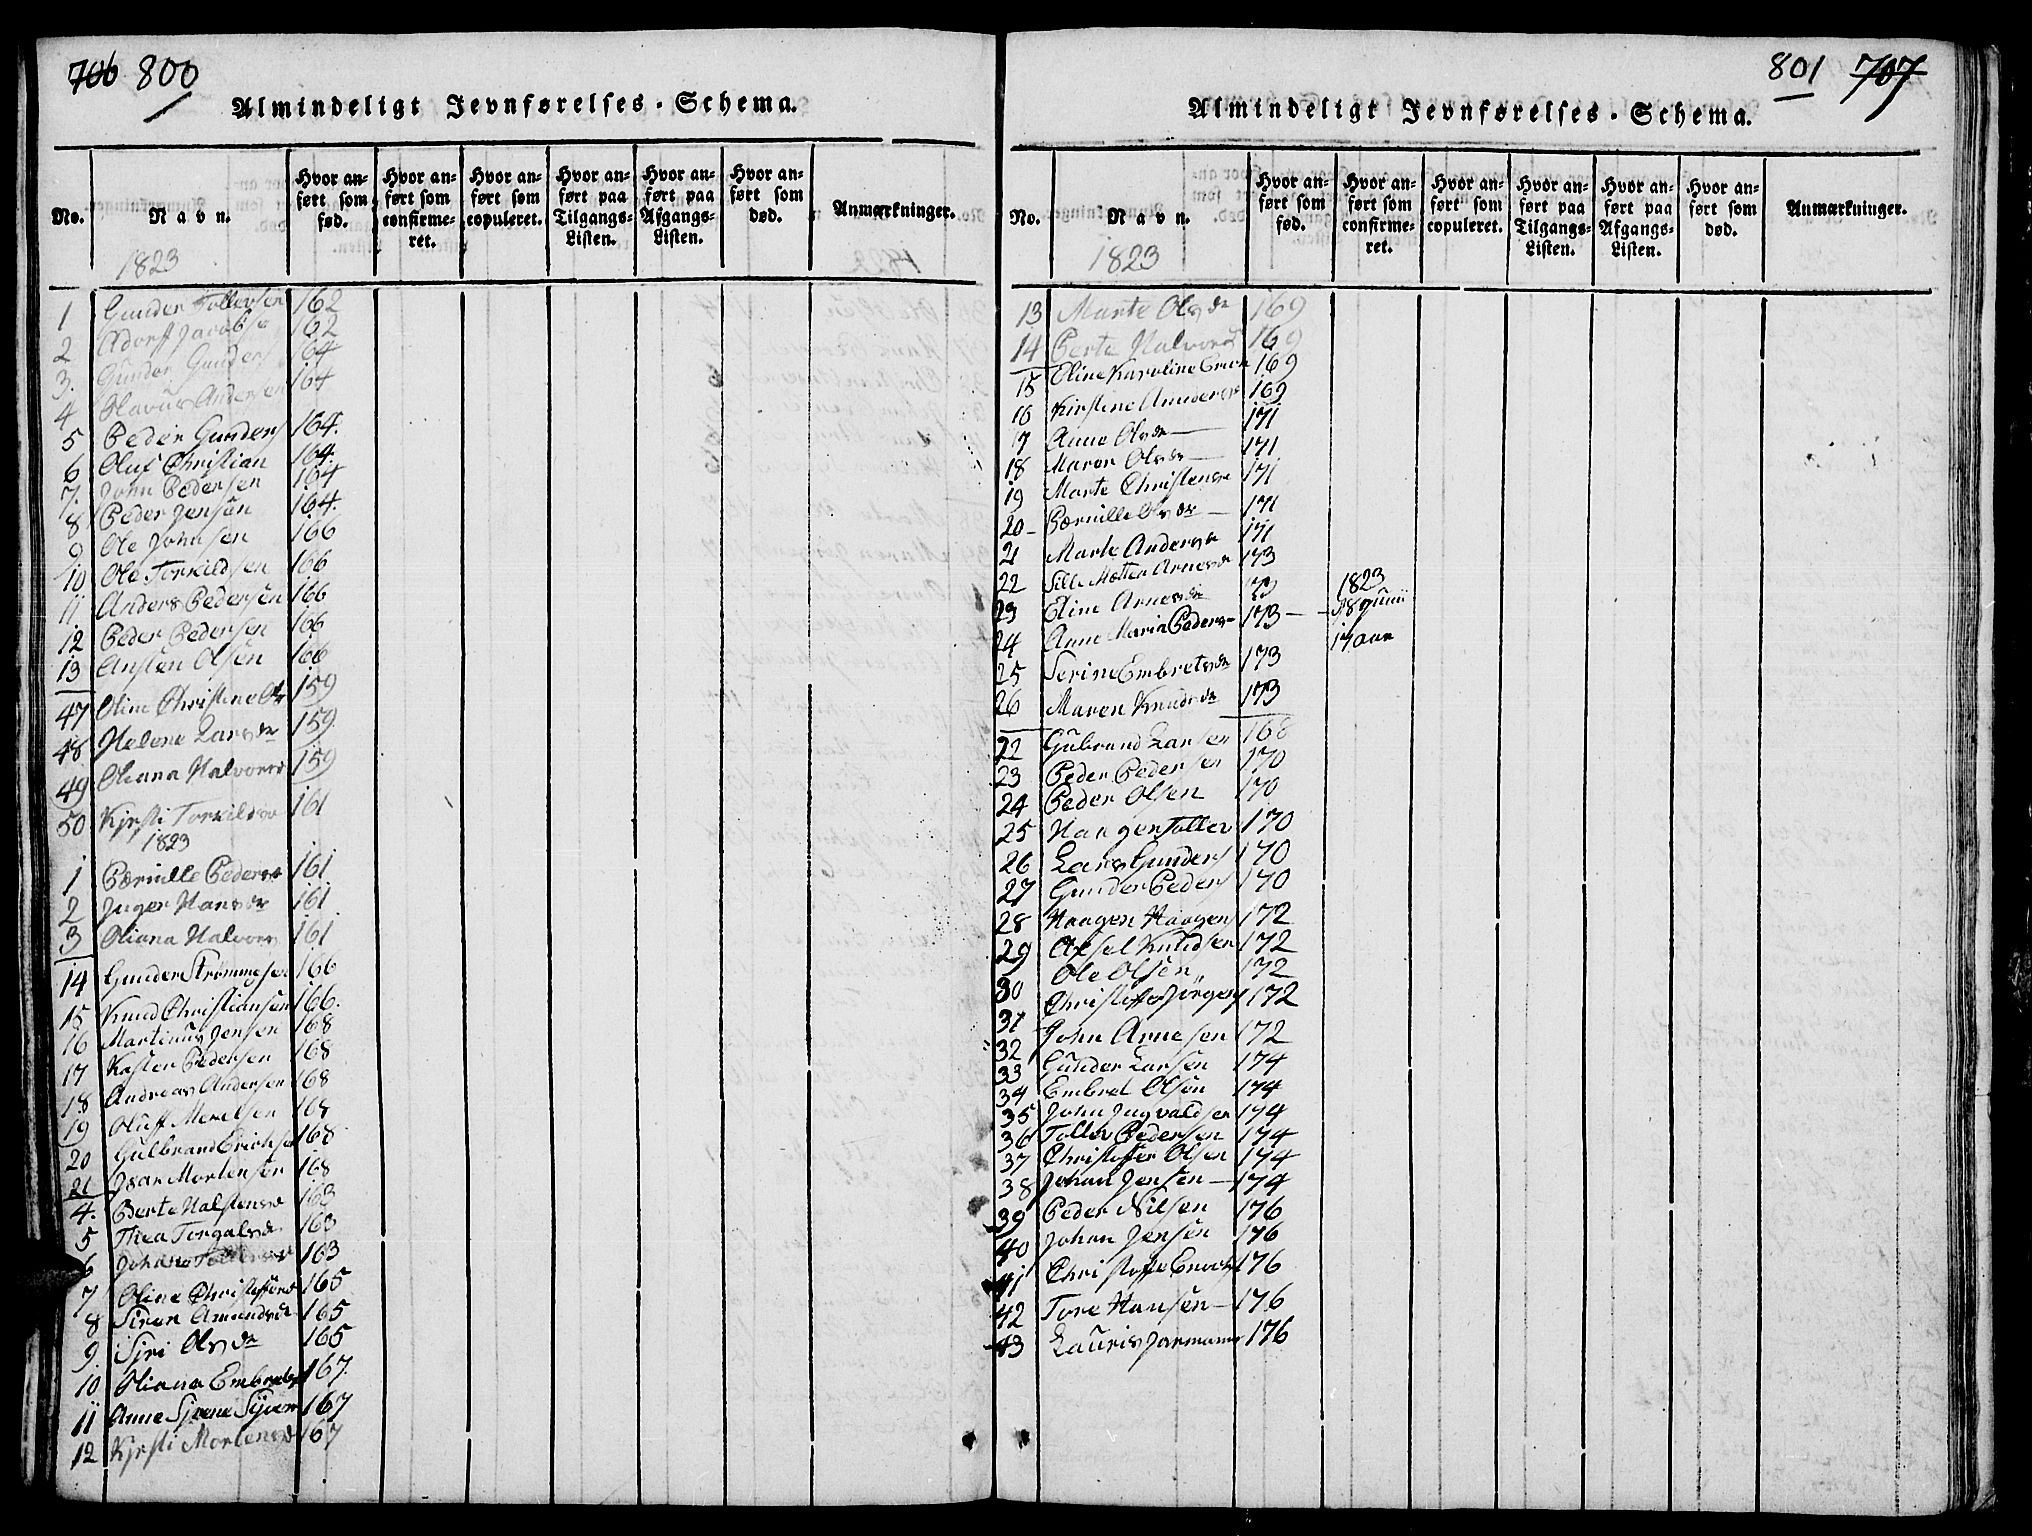 706 800
Almindeligt Jevnførelses-Schema.
No. Navn. Hvor anført som fød. Hvor anført som confirmeret. Hvor anført som copuleret. Hvor anført paa Tilgangs-Listen. Hvor anført paa Afgangs-Listen. Hvor anført som død. Anmærkninger.
1823
1 Gunder Tollersen 162
2 Adolf Jacobse 162
3. Gunder Gunders 164
4 Olavus Andersen 164
5 Peder Gunders 164.
6 Oluf Christian 164.
7. John Pedersen 164
8 Peder Jensen 164.
9 Ole Johnsen 166
10 Ole Torkildsen 166
11 Anders Pedersen 166
12 Peder Pedersen 166
13 Ansten Olsen 166
47 Oline Christine Ols 159
48 Helene Larsdr 159.
49 Oleana Halvorsd 159
50 Kjersti Torkildsd 161
1823
1 Pernille Pedersd 161
2 Inger Hansdr 161
3 Oliana Halvors 161
14 Gunder Strømmesen 166
15 Knud Christiansen 166.
16 Martinus Jensen 168
17 Kasten Pedersen 168
18 Andreas Andersen 168
19 Oluff Menelsen 168
20 Gulbrand Erichse 168
21 Isac Mortensen 168
4. Berte Halstensd 163
5 Thea Torgalsd 163
6 Johane 163
7 Oline Christoffersd 165
8 Siran Amundsd 165
9. Siri Olsdr 165
10 Oliana Embretsd 167.
11 Anne Sirene Syver 167
12 Kjersti Mortensd 167
801 707
Almindeligt Jevnførelses-Schema.
No. Navn. Hvor anført som fød. Hvor anført som confirmeret. Hvor anført som copuleret. Hvor anført paa Tilgangs-Listen. Hvor anført paa Afgangs-Listen. Hvor anført som død. Anmærkninger.
1823
13 Marte Olsdr 169
14 Berte Halvorsd 169
15 Oline Karoline 169
16 Kirstine Amunders 169
17 Anne Olsdr 171
18 Maren Olsdr 171
19 Marte Christensd 171
20 Pernille Olsdr 171
21 Marte Andersdr 171
22 Sille Mette Arnesdr 173
23 Eline Arnesdr 173 1823
24 Anne Maria Peders 173 28 Junii
25 Serine Embretsdr 173 17 aar
26 Maren Knudsdr 173
22 Gubrand Larsen 168
23 Peder Pedersen 170
24 Peder Olsen 170
25 Haagen Toller 170
26 Lars Gunders 170
27 Gunder Peders 170
28 Haagen Haagens 172
29 Axsel Knudsen 172
30 Ole Olsen 172
31 Christoffer Jørgens 172
32 John Arnesen 172
33 Gunder Larsen 174
34 Embret Olsen 174
35 John Ingvaldsen 174
36 Toller Pedersen 174
37 Christoffer Olsen 174
38 Johan Jensen 174
39 Peder Nilsen 176
40 Johan Jensen 176
41 Christoffe Enochs 176
42 Tore Hansen 176
43 Lauris Jarmann 176